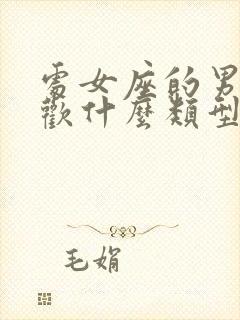 處女座的男
歡什麼類型
毛娟